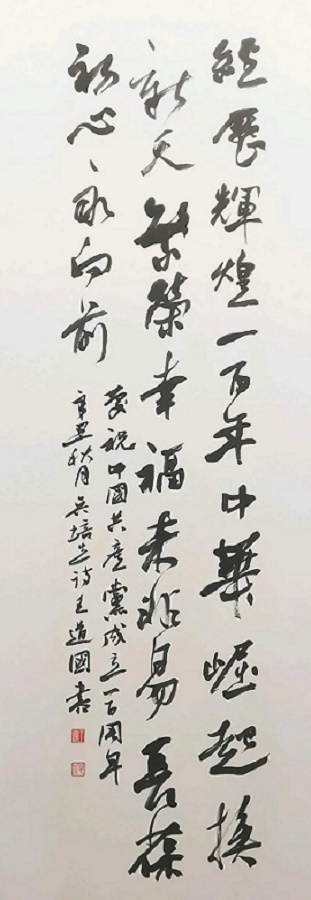 經歷輝煌一百年中華崛起換
新天繁榮幸福來非易長葆
初心永向前
慶祝中國共產黨成立一百周年
辛丑秋月吳培生詩王道國書